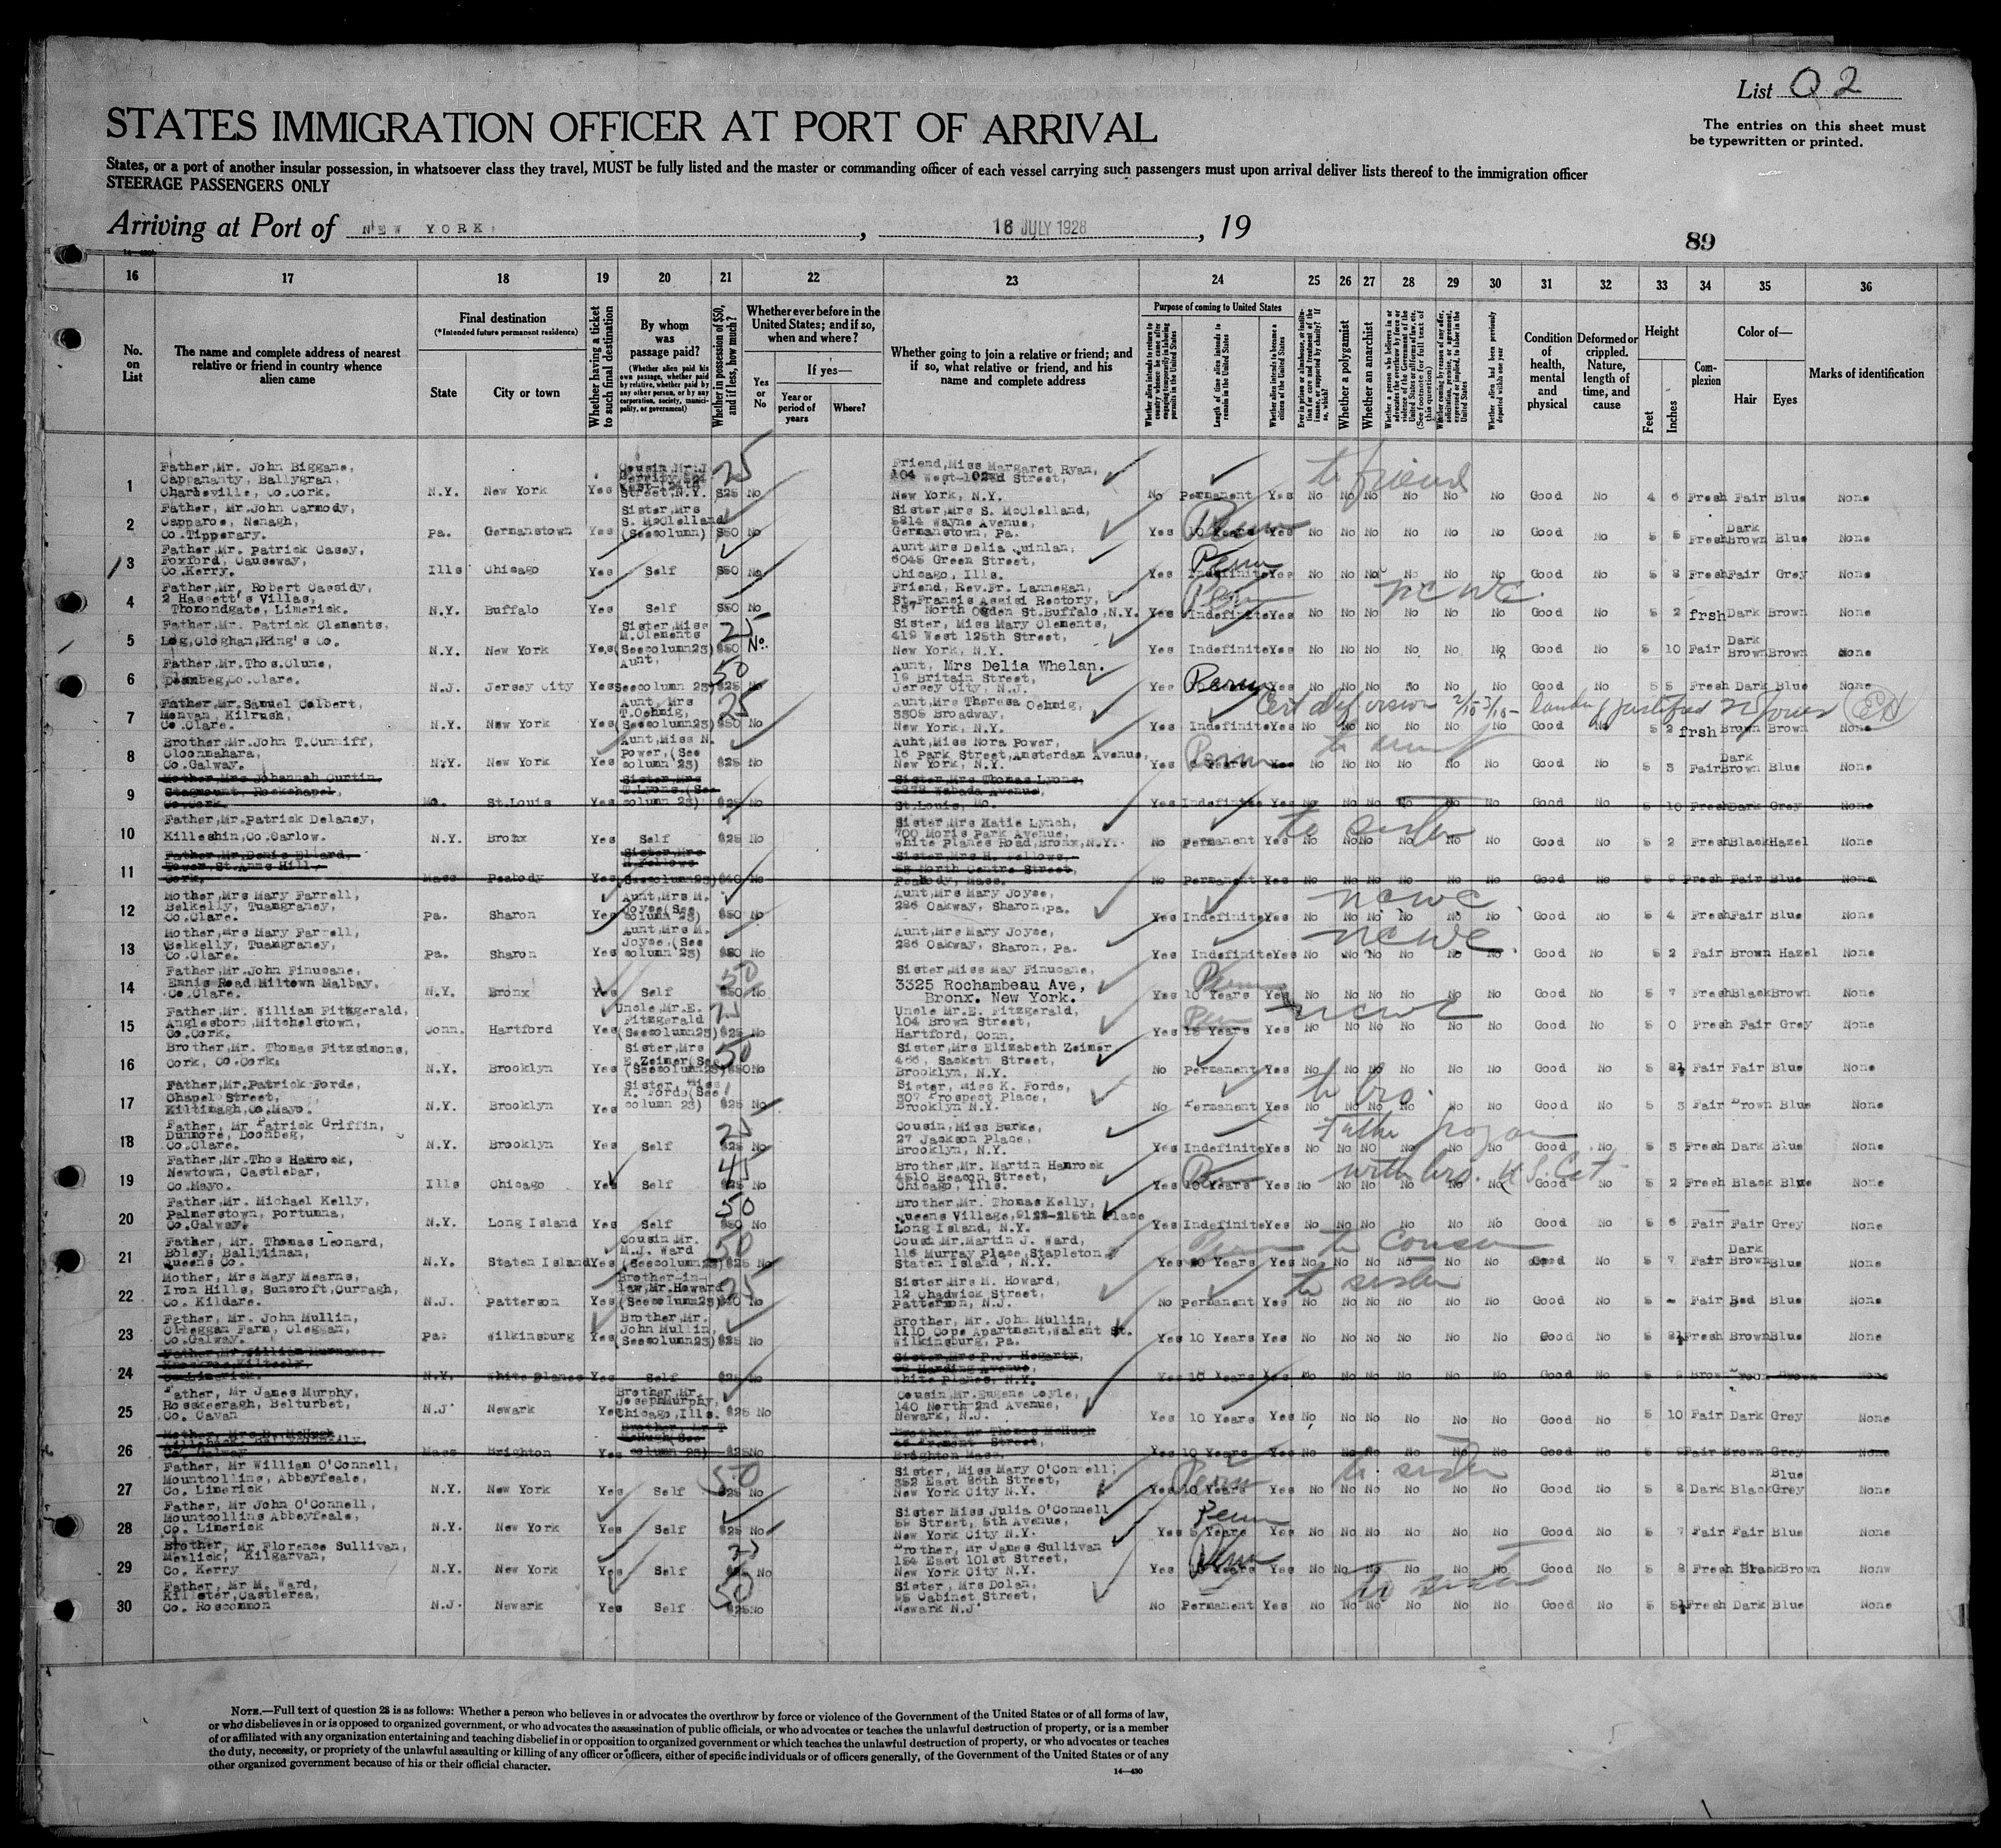 List Q 2
STATES IMMIGRATION OFFICER AT PORT OF ARRIVAL
The entries on this sheet must
be typewritten or printed.
States, or a port of another insular possession, in whatsoever class they travel, MUST be fully listed and the master or commanding officer of each vessel carrying such passengers must upon arrival deliver lists thereof to the immigration officer
STEERAGE PASSENGERS ONLY
Arriving at Port of NEW YORK, 16 JULY 1928, 19
89
16 17 18 19 20 21 22 23 24 25 26 27 28 29 30 31 32 33 34 35 36
No. on List
The name and complete address of nearest relative or friend in country whence alien came
Final destination
(*Intended future permanent residence)
State
City or town
Whether having a ticket to such final destination
By whom was passage paid?
(Whether alien paid his own passage, whether paid by relative, whether paid by any other person, or by any corporation, society, municipality, or government)
Whether in possession of $50, and if less, how much?
Whether ever before in the United States; and if so, when and where?
Yes or No
If yes—
Year or period of years
Where?
Whether going to join a relative or friend; and if so, what relative or friend, and his name and complete address
Purpose of coming to United States
Length of time alien intends to remain in the United States
Whether alien intends to become a citizen of the United States
Whether a polygamist
Whether an anarchist
Whether alien had been previously deported within one year
Condition of health, mental and physical
Deformed or crippled. Nature, length of time, and cause
Height
Feet
Inches
Complexion
Color of—
Hair
Eyes
Marks of identification
1 Father, Mr. John Biggane, Cappananty, Ballygran, Charleville, Co. Cork. N.Y. New York Yes $25 No Friend, Miss Margaret Ryan, 104 West-102nd Street, New York, N.Y. No Permanent Yes No No No No No No Good No 4 6 Fresh Fair Blue None
to friend
2 Father, Mr. John Carmody, Capparoe, Nenagh, Co. Tipperary. Pa. Germanstown Yes Sister, Mrs S. McClelland (See column) $50 No Sister, Mrs S. McClelland, 5214 Wayne Avenue, Germanstown, Pa. Yes 10 Years Yes No No No No No No Good No 5 5 Fresh Dark Brown Blue None
Perm
3 Father, Mr. Patrick Casey, Foxford, Causeway, Co. Kerry. Ills Chicago Yes Self $50 No Aunt, Mrs Delia Quinlan, 6045 Green Street, Chicago, Ills. Yes Indefinite Yes No No No No No No Good No 5 8 Fresh Fair Grey None
Perm
4 Father, Mr. Robert Cassidy, 2 Hassett's Villas, Thomondgate, Limerick. N.Y. Buffalo Yes Self $50 No Friend, Rev. Fr. Lannegan, St. Francis Assisi Rectory, 157 North Ogden St. Buffalo, N.Y. Yes Indefinite Yes No No No No No No Good No 5 2 frsh Dark Brown None
Perm
ncwc
5 Father, Mr. Patrick Clements, Cloghan, King's Co. N.Y. New York Yes Sister, Miss M. Clements (See column 23) $50 No. Sister, Miss Mary Clements, 419 West 125th Street, New York, N.Y. Yes Indefinite Yes No No No No No No Good No 5 10 Fair Dark Brown Brown None
25
6 Father, Mr. Thos. Clune, Co. Clare. N.J. Jersey City Yes Aunt, See column 23) $25 No Aunt, Mrs Delia Whelan. 19 Britain Street, Jersey City, N.J. Yes Yes No No No No No No Good No 5 5 Fresh Dark Blue None
50
Perm
7 Father, Mr. Samuel Colbert, Kilrush, Co. Clare. N.Y. New York Yes Aunt, Mrs T. Oehmig, (See column 23) $50 No Aunt, Mrs Theresa Oehmig, 3305 Broadway, New York, N.Y. Yes Indefinite Yes No No No No No No Good No 5 2 frsh Brown Brown None
25
8 Brother, Mr. John T. Cunniff, Cloonmahara, Co. Galway. N.Y. New York Yes Aunt, Miss N. Power, (See column 23) $25 No Aunt, Miss Nora Power, 15 Park Street, Amsterdam Avenue, New York, N.Y. Yes Years Yes No No No No No No Good No 5 3 Fair Dark Brown Blue None
Perm
9 Mother, Mrs Johannah Curtin, Stagmount, Rockchapel, Co. Cork Mo. St. Louis Yes Sister, Mrs T. Lyons, (See column 23) $25 No Sister, Mrs Thomas Lyons, Wabada Avenue, St. Louis, Mo. Yes Indefinite Yes No No No No No No Good No 5 10 Fresh Dark Grey None
10 Father, Mr. Patrick Delaney, Killeshin, Co. Carlow. N.Y. Bronx Yes Self $25 No Sister, Mrs Katie Lynch, 700 Moris Park Avenue, White Planes Road, Bronx, N.Y. No Permanent Yes No No No No No No Good No 5 2 Fresh Black Hazel None
to sister
11 Father, Mr. Denis Ellard, Tower, St. Anns Hill, Cork, Mass Peabody Yes Sister, Mrs Fellows (See column 23) No Sister, Mrs H. Fellows, 53 North Centre Street, Peabody, Mass. No Permanent Yes No No No No No No Good No 5 9 Fresh Fair Blue None
12 Mother, Mrs Mary Farrell, Belkelly, Tuamgraney, Co. Clare. Pa. Sharon Yes Aunt, Mrs M. Joyce, (See column 23) $50 No Aunt, Mrs Mary Joyce, 286 Oakway, Sharon, Pa. Yes Indefinite Yes No No No No No No Good No 5 4 Fresh Fair Blue None
ncwc
13 Mother, Mrs Mary Farrell, Belkelly, Tuamgraney, Co. Clare. Pa. Sharon Yes Aunt, Mrs M. Joyce, (See column 23) $50 No Aunt, Mrs Mary Joyce, 286 Oakway, Sharon, Pa. Yes Indefinite Yes No No No No No No Good No 5 2 Fair Brown Hazel None
ncwc
14 Father, Mr. John Finucane, Ennis Road Miltown Malbay, Co. Clare. N.Y. Bronx Yes Self $50 No Sister, Miss May Finucane, 3325 Rochambeau Ave, Bronx. New York. Yes 10 Years Yes No No No No No No Good No 5 7 Fresh Black Brown None
50
Perm
15 Father, Mr. William Fitzgerald, Anglesboro, Mitchelstown, Co. Cork. Conn. Hartford Yes Uncle, Mr. E. Fitzgerald (See column 23) $25 No Uncle Mr. E. Fitzgerald, 104 Brown Street, Hartford, Conn. Yes Years Yes No No No No No No Good No 5 0 Fresh Fair Grey None
Perm
ncwc
16 Brother, Mr. Thomas Fitzsimons, Cork, Co. Cork. N.Y. Brooklyn Yes Sister, Mrs E. Zeimer (See column 23) $50 No Sister, Mrs Elizabeth Zeimer 466, Sackett Street, Brooklyn, N.Y. No Permanent Yes No No No No No No Good No 5 Fair Fair Blue None
50
17 Father, Mr. Patrick Forde, Chapel Street, Kiltimagh, Co. Mayo. N.Y. Brooklyn Yes Sister, Miss K. Forde (See column 23) $25 No Sister, Miss K. Forde, 307 Prospect Place, Brooklyn N.Y. No Permanent Yes No No No No No No Good No 5 3 Fair Brown Blue None
to bro.
18 Father, Mr Patrick Griffin, Dunmore, Doonbeg, Co. Clare. N.Y. Brooklyn Yes Self $25 No Cousin, Miss Burke, 27 Jackson Place, Brooklyn, N.Y. Yes Indefinite Yes No No No No No No Good No 5 3 Fresh Dark Blue None
25
Father
19 Father, Mr. Thos Hanrock, Newtown, Castlebar, Co. Mayo. Ills Chicago Yes Self $25 No Brother, Mr. Martin Hanrock 4510 Beacon Street, Chicago, Ills. Yes 10 Years Yes No No No No No No Good No 5 2 Fresh Black Blue None
45
with bro. U.S. Cit
20 Father, Mr. Michael Kelly, Palmerstown, Portumna, Co. Galway. N.Y. Long Island Yes Self $50 No Brother, Mr. Thomas Kelly, Queens Village, 9122-215th Place Long Island, N.Y. Yes Indefinite Yes No No No No No No Good No 5 6 Fair Fair Grey None
50
21 Father, Mr. Thomas Leonard, Boley, Ballylinan, Queens Co. N.Y. Staten Island Yes Cousin Mr. M.J. Ward (See column 23) $25 No Cousi Mr. Martin J. Ward, 116 Murray Place, Stapleton Staten Island, N.Y. Yes 10 Years Yes No No No No No No Good No 5 7 Fair Dark Brown Blue None
50
Perm
to Cousin
22 Mother, Mrs Mary Mearns, Iron Hills, Suncroft, Curragh, Co. Kildare. N.J. Patterson Yes Brother-in-law, Mr. Howard (See column 23) No Sister, Mrs M. Howard, 12 Chadwick Street, Patterson, N.J. No Permanent Yes No No No No No No Good No 5 - Fair Red Blue None
25
to sister
23 Father, Mr. John Mullin, Cleggan Farm, Cleggan, Co. Galway. Pa. Wilkinsburg Yes Brother, Mr. John Mullin, (See column 23) $25 No Brother, Mr. John Mullin, 1110 Cope Apartment, Walent St. Wilkinsburg, Pa. Yes 10 Years Yes No No No No No No Good No 5 Fresh Brown Blue None
24 Father, Mr. William Murnane, Kilteely, Co. Limerick. N.Y. White Planes Yes Self $25 No Sister, Mrs P.J. Hogarty, Harding Avenue, White Planes, N.Y. Yes 10 Years Yes No No No No No No Good No 5 Brown Brown None
25 Father, Mr James Murphy, Roskeeragh, Belturbet, Co. Cavan N.J. Newark Yes Brother, Mr. Joseph Murphy, Chicago, Ills. $25 No Cousin, Mr. Eugene Coyle, 140 North 2nd Avenue, Newark, N.J. Yes 10 Years Yes No No No No No No Good No 5 10 Fair Dark Grey None
26 Mother, Mrs B. McHugh Co. Galway Mass Brighton Yes Brother, Mr T McHugh (See column 23) $25 No Brother, Mr Thomas McHugh Street, Brighton Mass. Yes 10 Years Yes No No No No No No Good No 5 Fair Brown Grey None
27 Father, Mr William O'Connell, Mountcolline, Abbeyfeale, Co. Limerick N.Y. New York Yes Self $25 No Sister, Miss Mary O'Connell, 352 East 86th Street, New York City N.Y. Yes 10 Years Yes No No No No No No Good No 5 8 Dark Black Blue Grey None
50
Perm
to sister
28 Father, Mr John O'Connell, Mountcollins Abbeyfeale, Co. Limerick N.Y. New York Yes Self $25 No Sister Miss Julia O'Connell Street, 5th Avenue, New York City N.Y. Yes 5 Years Yes No No No No No No Good No 5 7 Fair Fair Blue None
Perm
29 Brother, Mr Florence Sullivan, Kilgarvan, Co. Kerry N.Y. New York Yes Self No Brother, Mr James Sullivan 154 East 101st Street, New York City N.Y. Yes Years Yes No No No No No No Good No 5 8 Fresh Black Brown Nonw
Perm
30 Father, Mr M. Ward, Killster, Castlerea, Co. Roscommon N.J. Newark Yes Self $25 No Sister, Mrs Dolan, 95 Cabinet Street, Newark N.J. No Permanent Yes No No No No No No Good No 5 Fresh Dark Blue None
50
to sister
NOTE.—Full text of question 28 is as follows: Whether a person who believes in or advocates the overthrow by force or violence of the Government of the United States or of all forms of law,
or who disbelieves in or is opposed to organized government, or who advocates the assassination of public officials, or who advocates or teaches the unlawful destruction of property, or is a member
of or affiliated with any organization entertaining and teaching disbelief in or opposition to organized government or which teaches the unlawful destruction of property, or who advocates or teaches
the duty, necessity, or propriety of the unlawful assaulting or killing of any officer or officers, either of specific individuals or of officers generally, of the Government of the United States or of any
other organized government because of his or their official character.
14—430